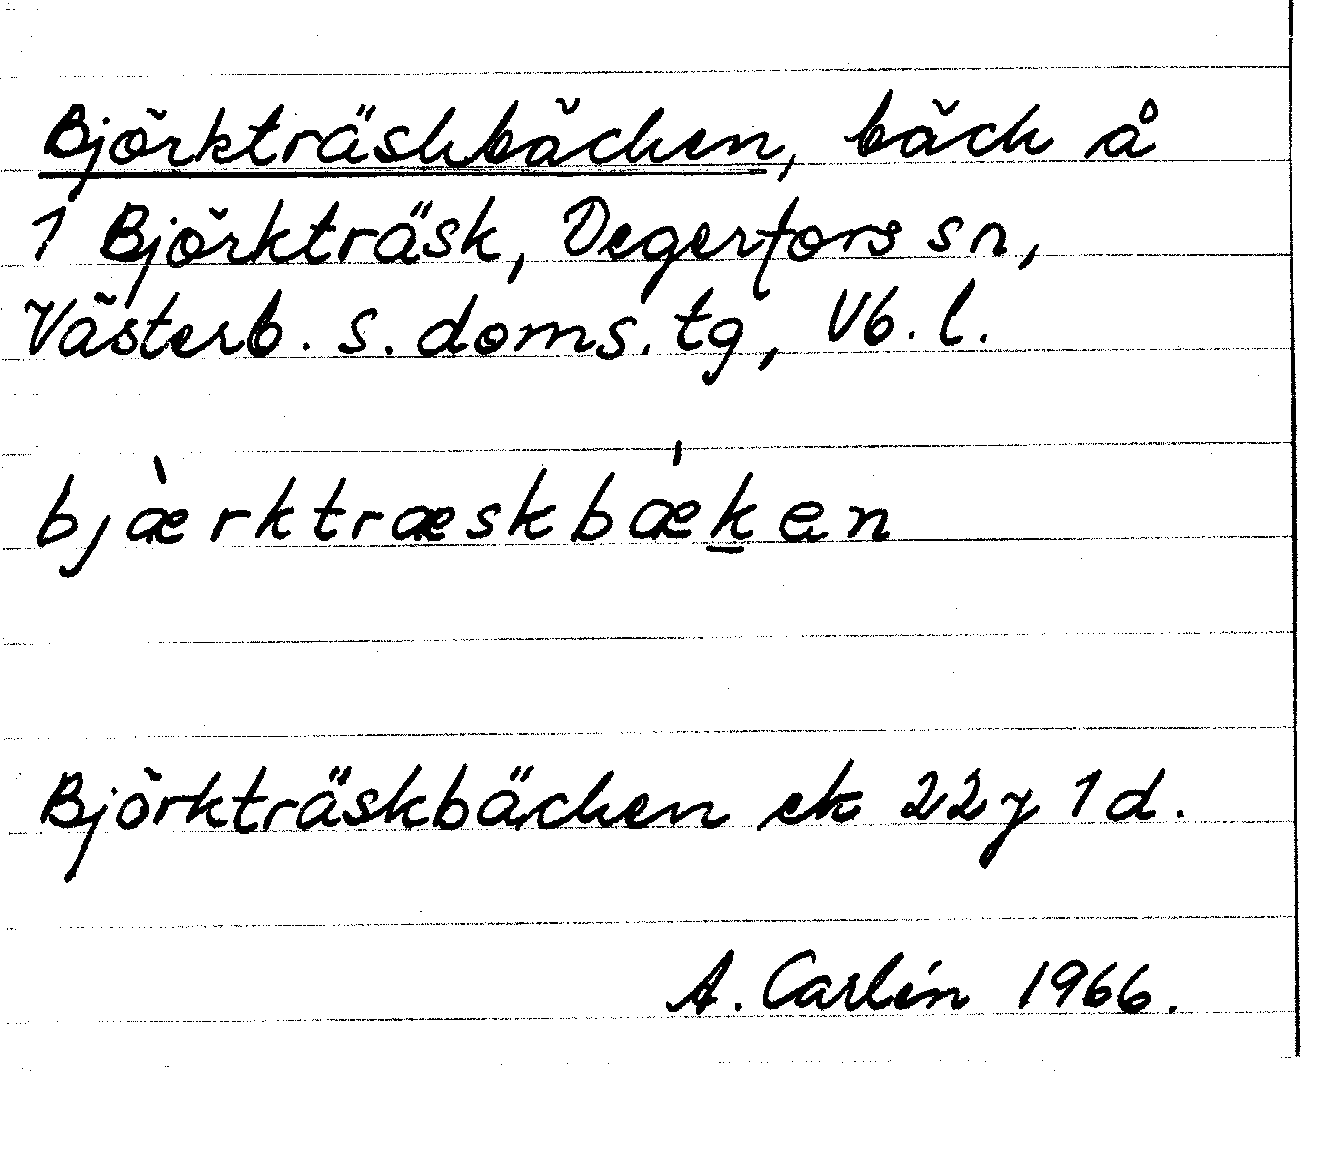 Björkträskbäcken, bäck å
1 Björkträsk, Degerfors sn,
Västerb. s. doms. tg, Vb. l.
bjæ̀rktræskbǽk̲en
Björkträskbäcken ek 22 J 1 d.
A. Carlin 1966.